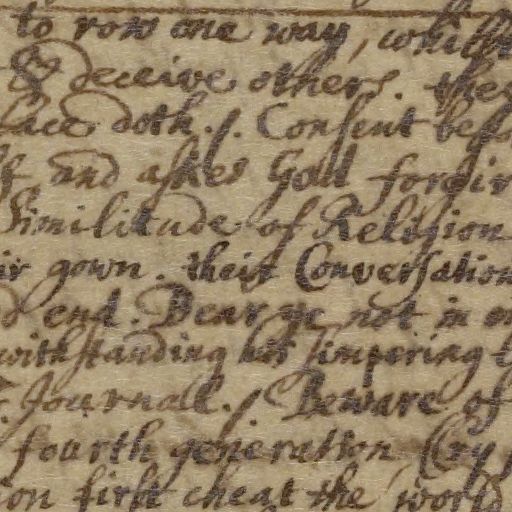 to row one way, whilst
& deceive others. they
face doth. /. Consent befo
lf and askes God forgiv
Similitude of Religion
ir gown. their Conversation
d end. Bear ye not in
withstanding his simpering
Journall. /. Beware of
fourth generation Cry
ion first cheat the world